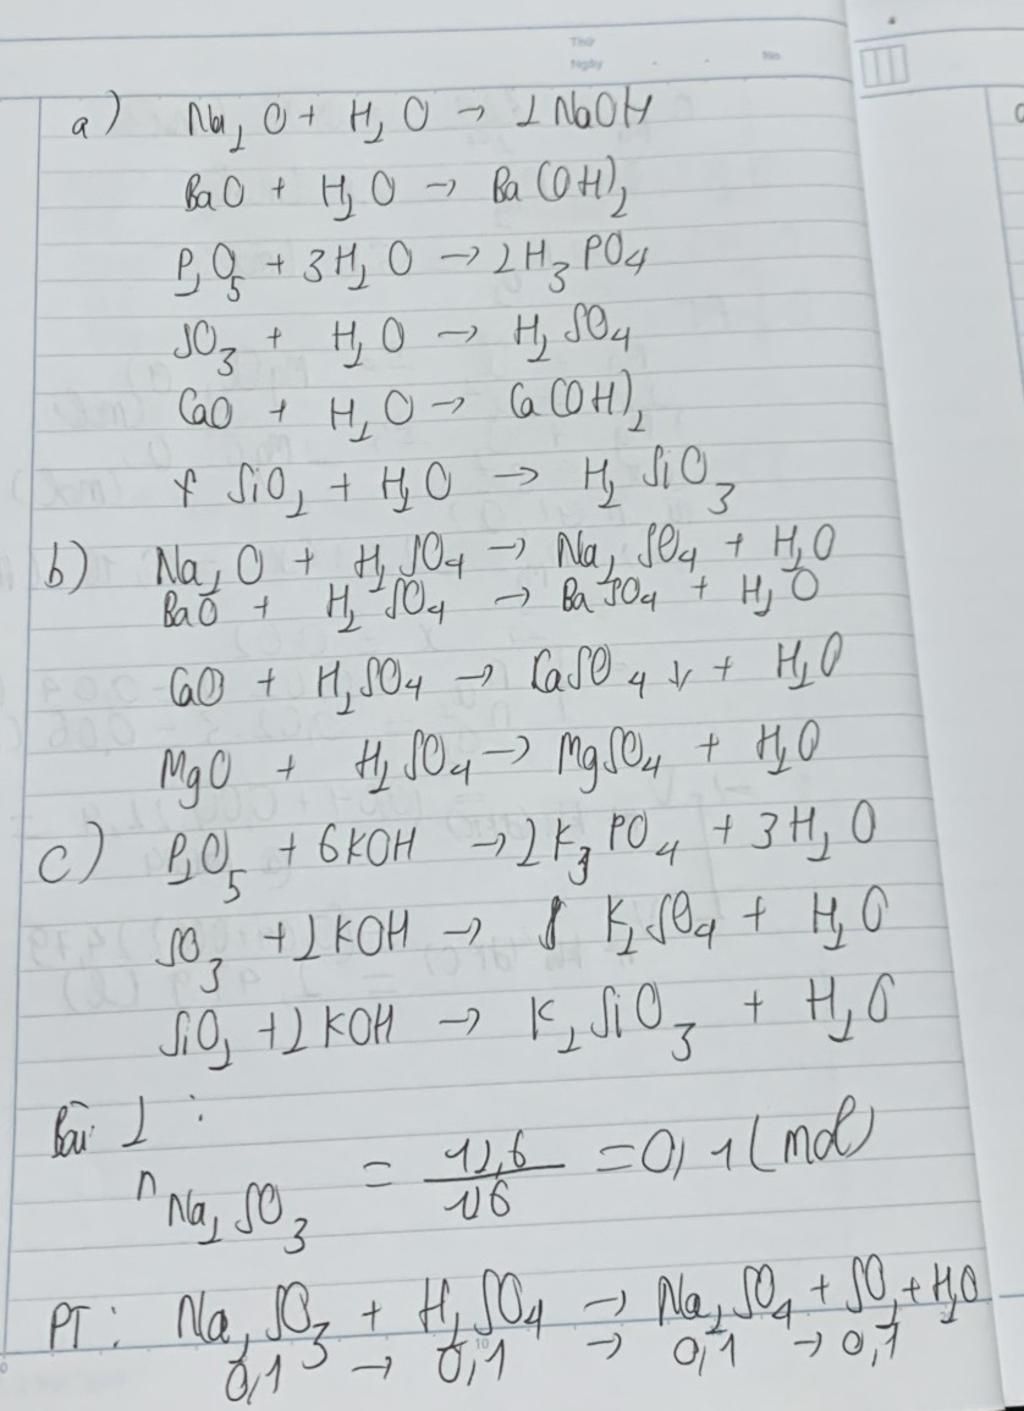 Thứ
Ngày No.
a) Na₂O + H₂O → 2NaOH
BaO + H₂O → Ba(OH)₂
P₂O₅ + 3H₂O → 2H₃PO₄
SO₃ + H₂O → H₂SO₄
CaO + H₂O → Ca(OH)₂
SiO₂ + H₂O → H₂SiO₃
b) Na₂O + H₂SO₄ → Na₂SO₄ + H₂O
BaO + H₂SO₄ → BaSO₄ + H₂O
CaO + H₂SO₄ → CaSO₄ ↓ + H₂O
MgO + H₂SO₄ → MgSO₄ + H₂O
c) P₂O₅ + 6KOH → 2K₃PO₄ + 3H₂O
SO₃ + 2KOH → K₂SO₄ + H₂O
SiO₂ + 2KOH → K₂SiO₃ + H₂O
Bài 2 :
n Na₂SO₃ = 12,6 / 126 = 0,1 (mol)
PT: Na₂SO₃ + H₂SO₄ → Na₂SO₄ + SO₂ + H₂O
0,1 → 0,1 → 0,1 → 0,1